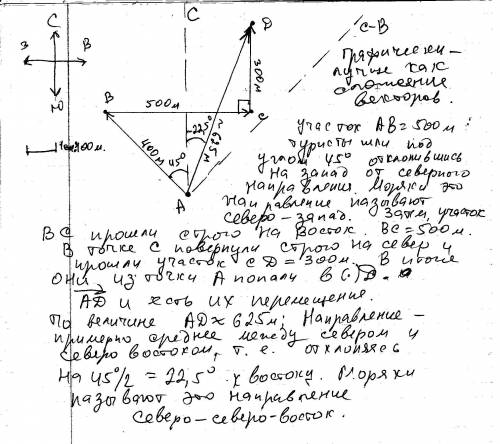 С
С
С-В
D
З
В
Ю
Графически –
лучше как
сложение
векторов.
300м
В
500м
С
22,5°
≈ 625м
400м
45°
А
1см=100м.
Участок АВ=500м
туристы шли под
углом 45° отклонившись
на запад от северного
направления. Моряки это
направление называют
северо-запад. Затем, участок
ВС прошли строго на Восток. ВС=500м.
В точке С повернули строго на север и
прошли участок СD = 300м. В итоге
они из точки А попали в (·) D.
AD и есть их перемещение.
По величине AD≈625м; Направление –
примерно среднее между севером и
северо востоком, т.е. отклоняясь
на 45°/2 = 22,5° к востоку. Моряки
называют это направление
северо-северо-восток.